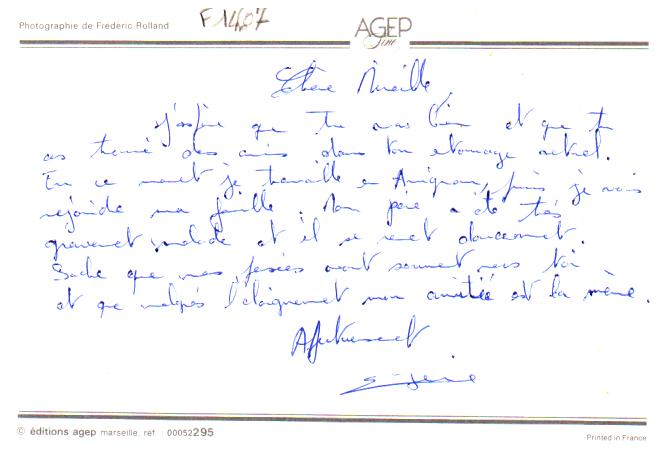 Photographie de Frédéric Rolland
F 1407
AGEP
Chère Mireille,
J'espère que tu vas bien et que tu
as trouvé des amis dans ton entourage actuel.
En ce moment je travaille en Avignon, puis je vais
rejoindre ma famille. Mon père a été très
gravement malade et il se remet doucement.
Sache que mes pensées vont souvent vers toi
et que malgrés l'éloignement mon amitiée est la même.
Affectueusement
© éditions agep marseille, réf. : 00052295
Printed in France